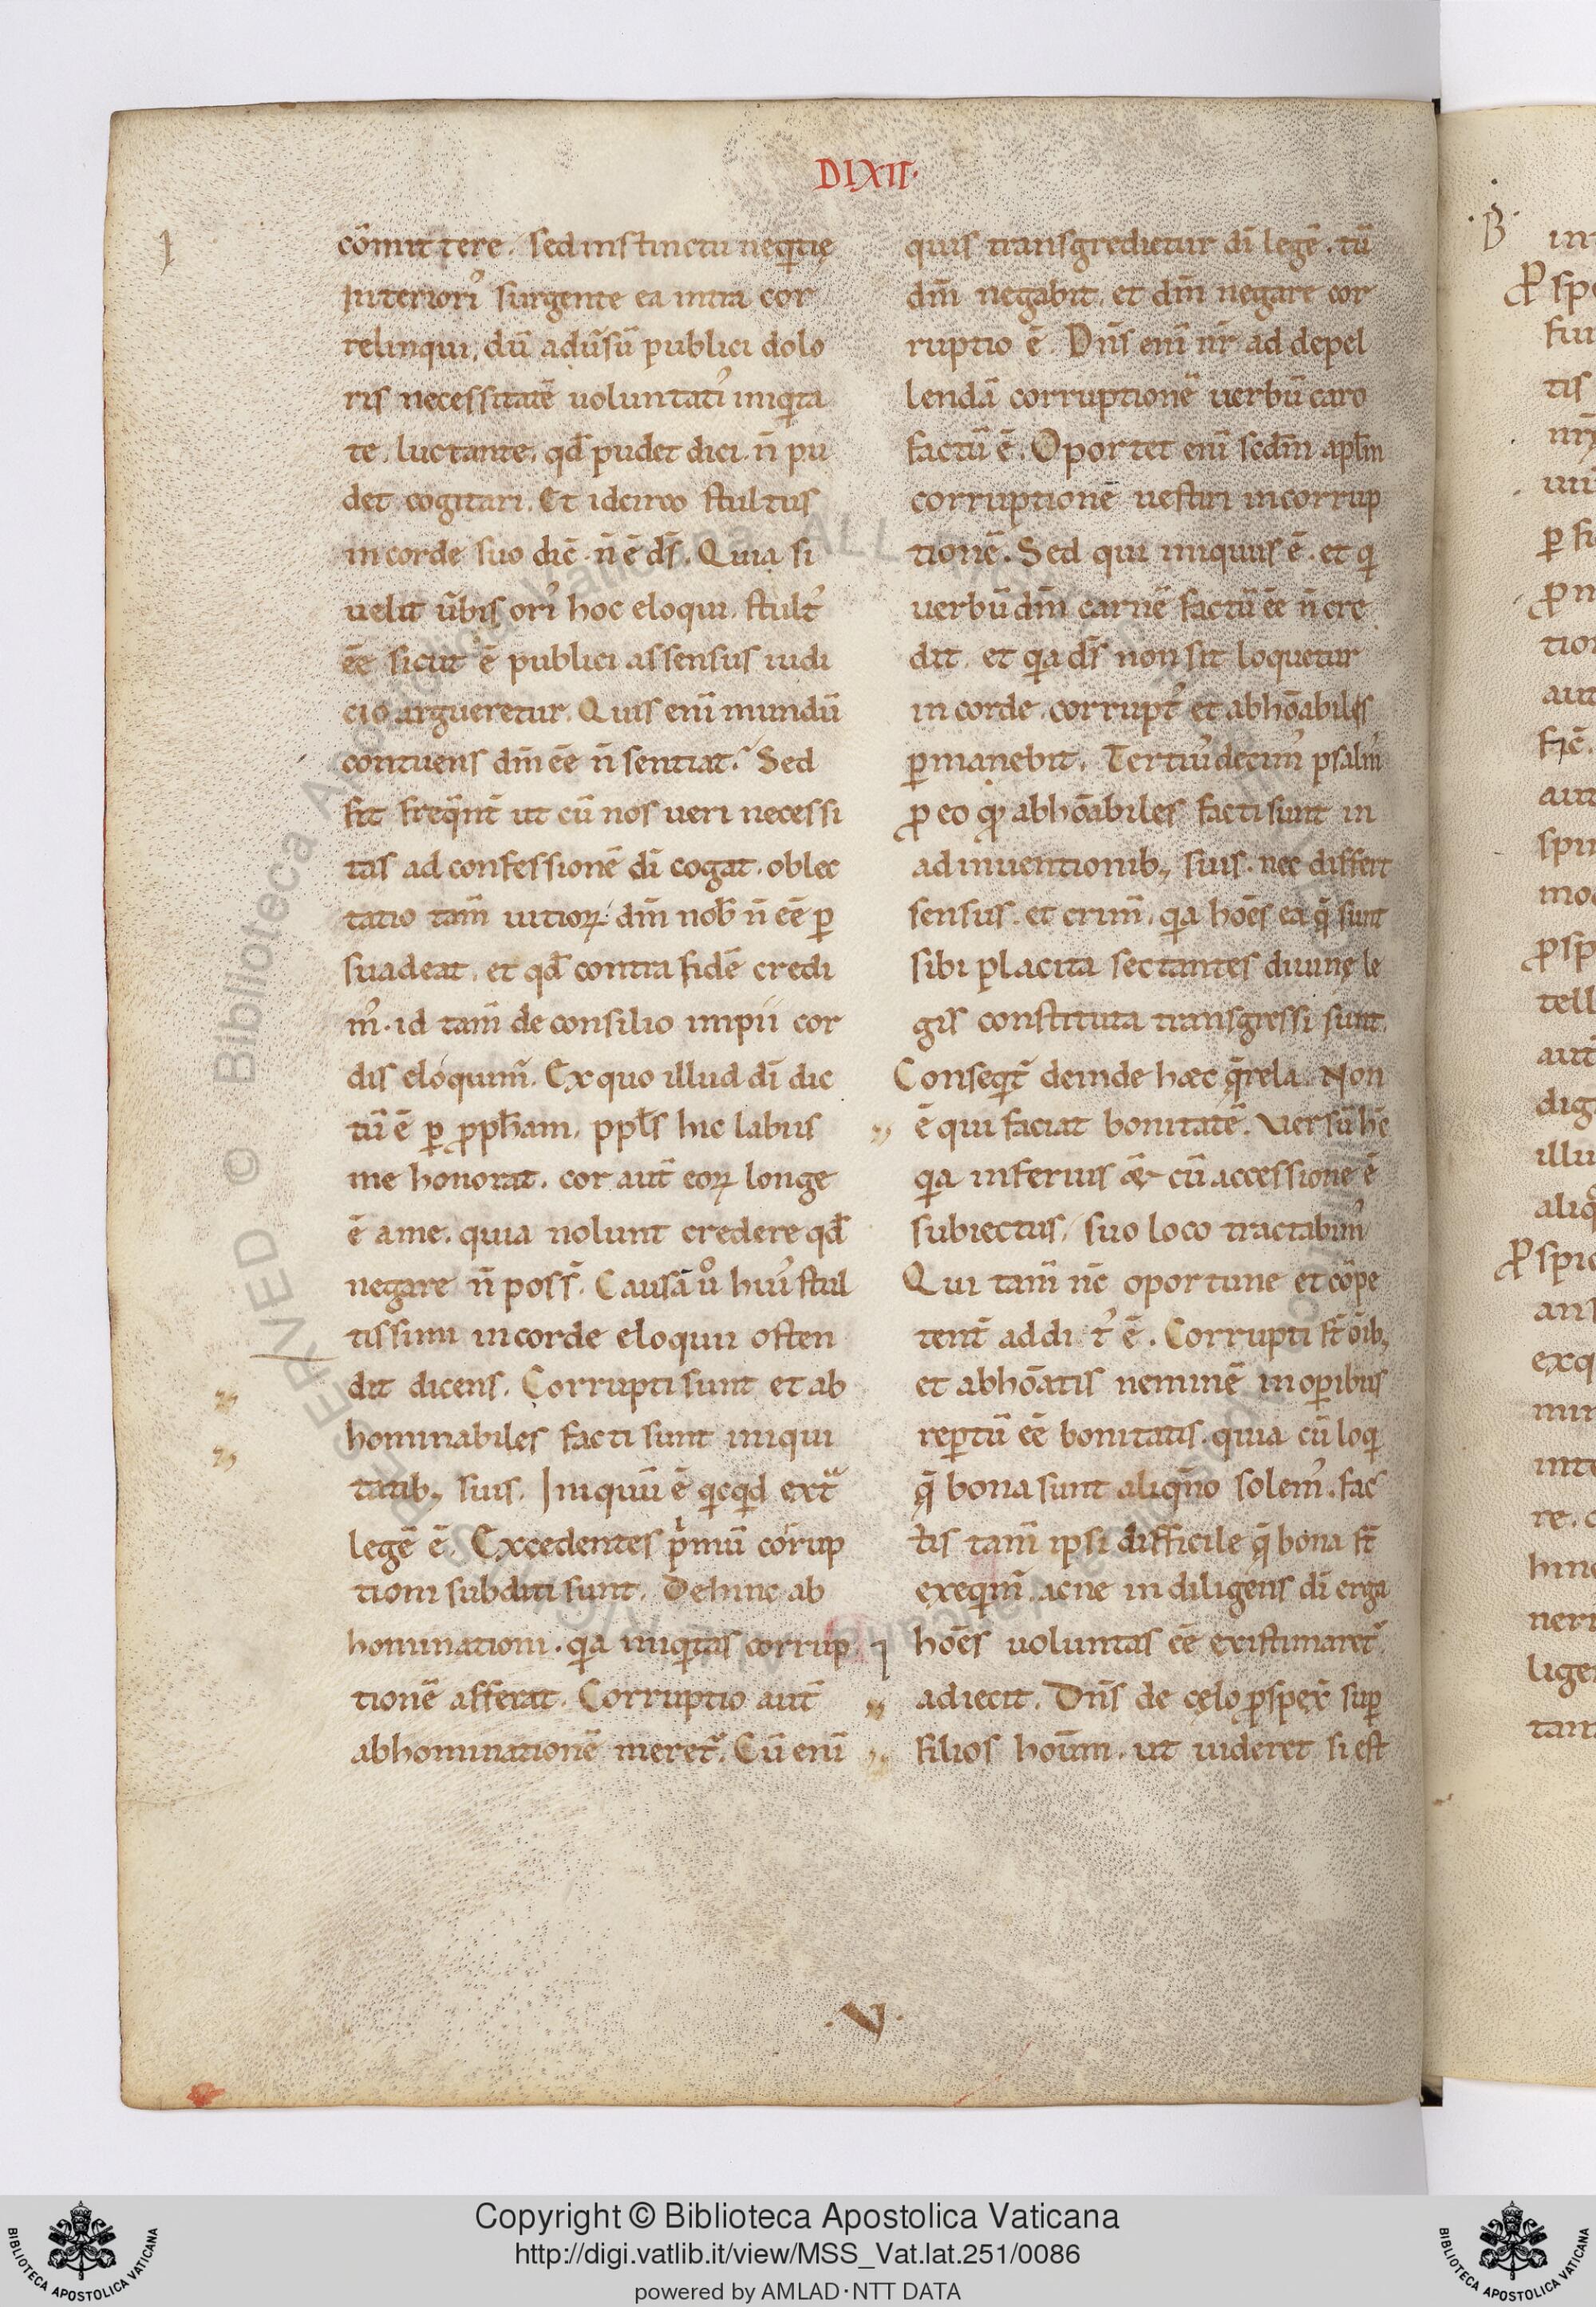 DIXIT·
cōmittere. sed instinctu neq̇tię
Interiori᾽ surgente ea intra cor
relinqui. dū adūsū publici dolo
ris necessitatē uoluntati᾽ iniq̇ta
te luctante. qđ pudet dici. n̄ pu
det cogitari. Et idcirco stultus
in corde suo dic̄ n̄ ē dꝰs. Quia si
uelit ūbis ori᾽ hoc eloqui. stult᾽
ēe sicut ē publici assensus iudi
cio argueretur. Quis eni᷃ mundū
contuens dm̄ ēe n̄ sentiat. Sed
fit freq̄nt̄ ut cū nos ueri necessi
tas ad confessionē dī cogat. oblec
tatio tam̄ uitioꝝ dm̄ nob̄ n̄ ēē ꝑ
suadeat. et qđ contra fidē credi
m᾽. id tam̄ de consilio impii cor
dis eloquim̃. Ex quo illud dī dic
tū ē ꝑ ꝓpħam. pplꝰs hic labiis
me honorat. cor aut̄ eoꝝ longe
ē a me. quia nolunt credere qđ
negare n̄ poss̄. Causā u̇ hui᾽ stul
tissimi in corde eloquii osten
dit dicens. Corrupti sunt et ab
hominabiles facti sunt in iniqui
tatibꝫ suis. Iniquū ē q̇cq̇d ext̃
legē ē. Excedentes pͥmū corrup
tioni subditi sunt. Dehinc ab
hominationi. q̇a iniq̇tas corrup
tionē afferat. Corruptio aut̄
abhominationē meret̃. Cū enī
quis transgredietur dī legē. tū
dm̄ negabit. et dm̄ negare cor
ruptio ē. Dn̄s enī nr̄ ad depel
lendā corruptionē uerbū caro
factū ē. Oportet enī scdm̄ aplm̄
corruptionē uestiri incorrup
tionē. Sed qui iniquus ē. et q̇
uerbū dm̄ carnē factū ēe n̄ cre
dit. et q̇a dꝰs non sit loquetur
in corde. corrupt᾽ et abhōabiles
ꝑmanebit. Tertiu᾽decim᾽ psalm᾽
ꝓ eo qđ abhōabiles facti sunt in
adinuentionibꝫ suis. nec differt
sensus. et crim̄. q̇a hōes ea q̄ sunt
sibi placita sectantes diuinę le
gis constituta transgressi sunt.
Conseq̇t̃ deinde hæc q̄rela. Non
ē qui faciat bonitatē. Versū hc̄
q̇a inferius &̄ cū accessione ē
subiectus, suo loco tractabim᾽
Qui tam̄ nc̄ oportune et cōpe
tent̄ addit᾽ ē. Corrupti st̄ oībꝫ
et abhōatis neminē in oꝑibus
reꝑtū ēē bonitatis. quia cū loq̇
q̄ bona sunt aliq̄no solem᾽. fac
tis tam̄ ipsi difficile q̄ bona st̄
exeq̇m̃. ac ne indiligens dī erga
hōes uoluntas ēē existimaret̃.
adiecit. Dn̄s de cęlo ꝓspex̄ suꝑ
filios hoīum. ut uideret si est
·V·
Copyright © Biblioteca Apostolica Vaticana
http://digi.vatlib.it/view/MSS_Vat.lat.251/0086
powered by AMLAD·NTT DATA